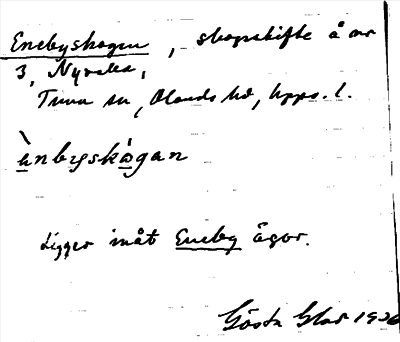 Enebyskogen, skogsskifte å nr
3, Nyvalla,
Tuna sn, Olands hd, Upps. l.
ànbyskògan
Ligger inåt Eneby ägor.
Gösta Glas 1926